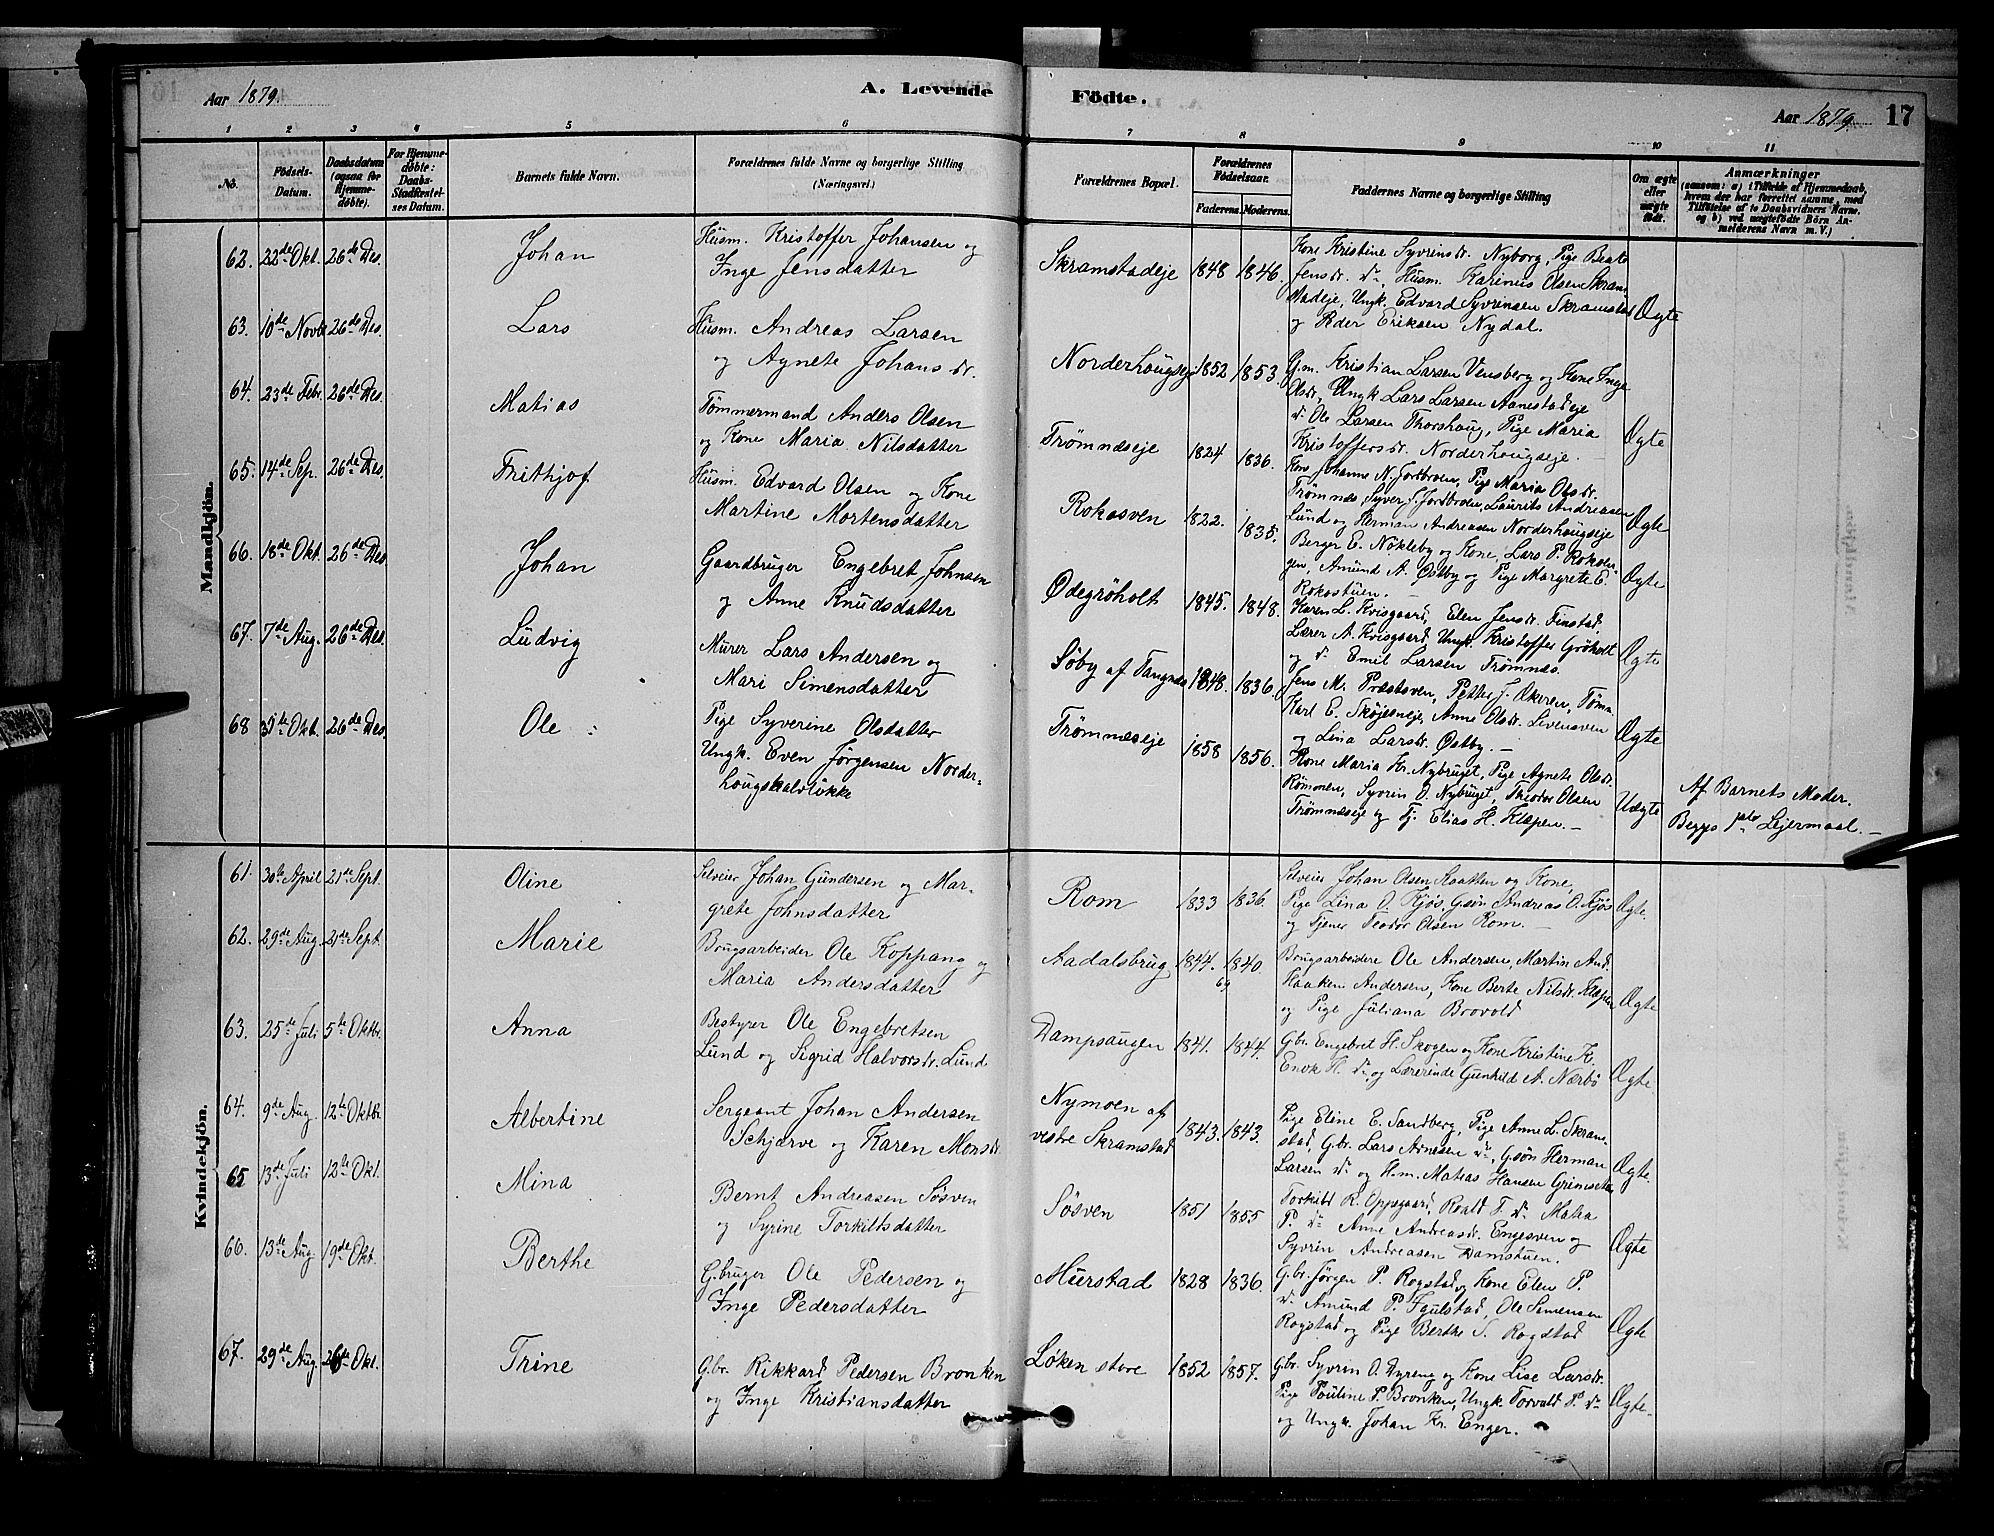 Aar 1879.
A. Levende Födte.
Aar 1879
17
1 2 3 4 5 6 7 8 9 10 11
No.
Födsels-Datum.
Daabsdatum (ogsaa for Hjemmedöbte).
For Hjemmedöbte: Daabs-Stadfæstelses Datum.
Barnets fulde Navn.
Forældrenes fulde Navne og borgerlige Stilling (Næringsvei.)
Forældrenes Bopæl.
Forældrenes Födselsaar.
Faderens. Moderens.
Faddernes Navne og borgerlige Stilling
Om ægte eller uægte födt.
Anmærkninger
(saasom: a) i Tilfælde af Hjemmedaab, hvem der har forrettet samme, med Tilföielse af to Daabsvidners Navne, og b) ved uægtefödte Börn Anmelderens Navn m. V.)
Mandkjön.
62. 22de Okt. 26de Des. Johan
Husm. Kristoffer Johansen og
Inge Jensdatter
Skramstadeje 1848 1846.
Kone Kristine Syvrinsdr. Nyborg, Pige Beate
Jensdr. do, Husm. Karinus Olsen Skram
stadeje, Ungk. Edvard Syvrensen Skramstad
og Peder Eriksen Nydal.
Ægte
63. 10de Novbr 26de Des. Lars
Husm. Andreas Larsen
og Agnete Johansdr.
Norderhougseje 1852 1853.
G.m. Kristian Larsen Vensberg og Kone Inge
Olsdr, Ungk Lars Larsen Aanestadeje
do Ole Larsen Thorshaug, Pige Maria
Kristoffersdr. Norderhougseje.
Ægte
64. 23de Febr. 26de Des. Matias
Tømmermand Anders Olsen
og Kone Maria Nilsdatter
Trømnæseje 1824 1836.
Kone Johanne N. Jordbroen, Pige Maria Olsdr.
Trømnæs, Syver J. Jordbroen, Laurits Andreasen
Lund og Herman Andreasen Norderhougseje
Ægte
65. 14de Sep. 26de Des. Frithjof
Husm. Edvard Olsen og Kone
Martine Mortensdatter
Rokosven 1822. 1835.
Berger E. Nøkleby og Kone, Lars P. Rokoter-
gen, Amund A. Østby og Pige Margrete E.
Rokostuen.
Ægte
66. 18de Okt. 26de Des Johan
Gaardbruger Engebret Johnsen
og Anne Knudsdatter
Ødegrøholt 1845. 1848.
Karen L. Kvisgaard, Elen Jensdr. Finstad,
Lærer A. Kvisgaard, Ungk. Kristoffer Grøholt
og do Emil Larsen Trømnæs.
Ægte
67. 7de Aug. 26de Des. Ludvig
Murer Lars Andersen og
Mari Simensdatter
Søby af Tangnæs 1848. 1836.
Jens M. Præstsven, Petter J. Økeren, Tømm.
Karl E. Skøjesneje, Anne Olsdr. Levensven
og Lina Larsdr. Østby.
Ægte
68 31te Okt. 26de Des. Ole
Pige Syverine Olsdatter
Ungk. Even Jørgensen Norder-
hougskalvløkke
Trømnæseje 1858 1856.
Kone Maria Hr. Nybruget, Pige Agnete Olsdr.
Rømonen, Syvrin O. Nybruget, Theodor Olsen
Trømnæseje og Tj. Elias H. Klæpen.
Uægte
Af Barnets Moder.
Begges 1ste Lejermaal.
Kvindekjön.
61. 30te April 21de Sept. Oline
Selveier Johan Gundersen og Mar-
grete Johnsdatter
Rom 1833 1836.
Selveier Johan Olsen Kaatten og Kone,
Pige Lina O. Kjøs, G.søn Andreas O. Kjøs
og Tjener Teodor Olsen Rom.
Ægte.
62. 29de Aug. 21de Sept. Marie
Brugsarbeider Ole Koppang og
Maria Andersdatter
Aadalsbrug 1844. 1840.
Brugsarbeidere Ole Andersen, Martin And.
Haaken Andersen, Kone Berte Nilsdr. Klæpen
og Pige Juliana Brovold
Ægte
63. 25de Juli 5te Oktbr. Anna
Bestyrer Ole Engebretsen
Lund og Sigrid Halvorsdr. Lund
Dampsaugen 1841. 1844.
Gbr. Engebret H. Skogen og Kone Kristine K.
Enok H. do, og Lærerinde Gunhild A. Nærbö
Ægte
64. 9de Aug. 12te Oktbr Albertine
Sergeant Johan Andersen
Schjærve og Karen Monsdr.
Nymoen af
vestre Skramstad 1843. 1843.
Pige Eline E. Sandberg, Pige Anne L. Skram-
stad, G.br. Lars Arnesen do, G.søn Herman
Larsen do og H.m. Matias Hansen Grimset
Ægte.
65 13de Juli 12te Okt. Mina
Bernt Andreasen Søsven
og Syrine Torkildsdatter
Søsven 1851 1855
Torkild R. Oppegaard, Roald T. do Matea
P. do Anne Andreasdr. Engesven og
Syvrin Andreasen Damstuen.
Ægte
66. 13de Aug. 19de Okt. Berthe
G.bruger Ole Pedersen og
Inge Pedersdatter
Murstad 1828 1836.
G.br. Jørgen P. Rogstad og Kone Elen P.
do Amund P. Fjulstad, Ole Simensen
Rogstad og Pige Berthe S. Rogstad
Ægte
67. 29de Aug. 26de Okt. Trine
G.br. Rikkard Pedersen Bronken
og Inge Kristiansdatter
Løken store 1852 1857.
G.br. Syvrin O. Dyreng og Kone Lise Larsdr.
Pige Pouline P. Bronken, Ungk. Torvald P. do
og Ungk. Johan Kr. Enger.
Ægte